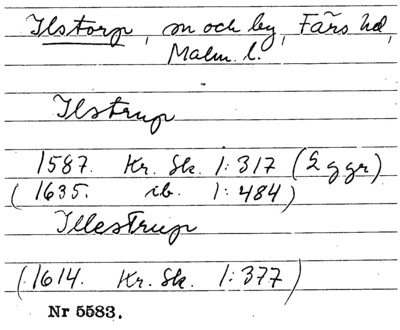 Ilstorp, sn och by, Färs hd,
Malm. l.
Ilstrup
1587. Kr. Sk. 1:317 (2 ggr)
(1635. ib. 1:484)
Illestrup
(1614. Kr. Sk. 1:377)
Nr 5583.